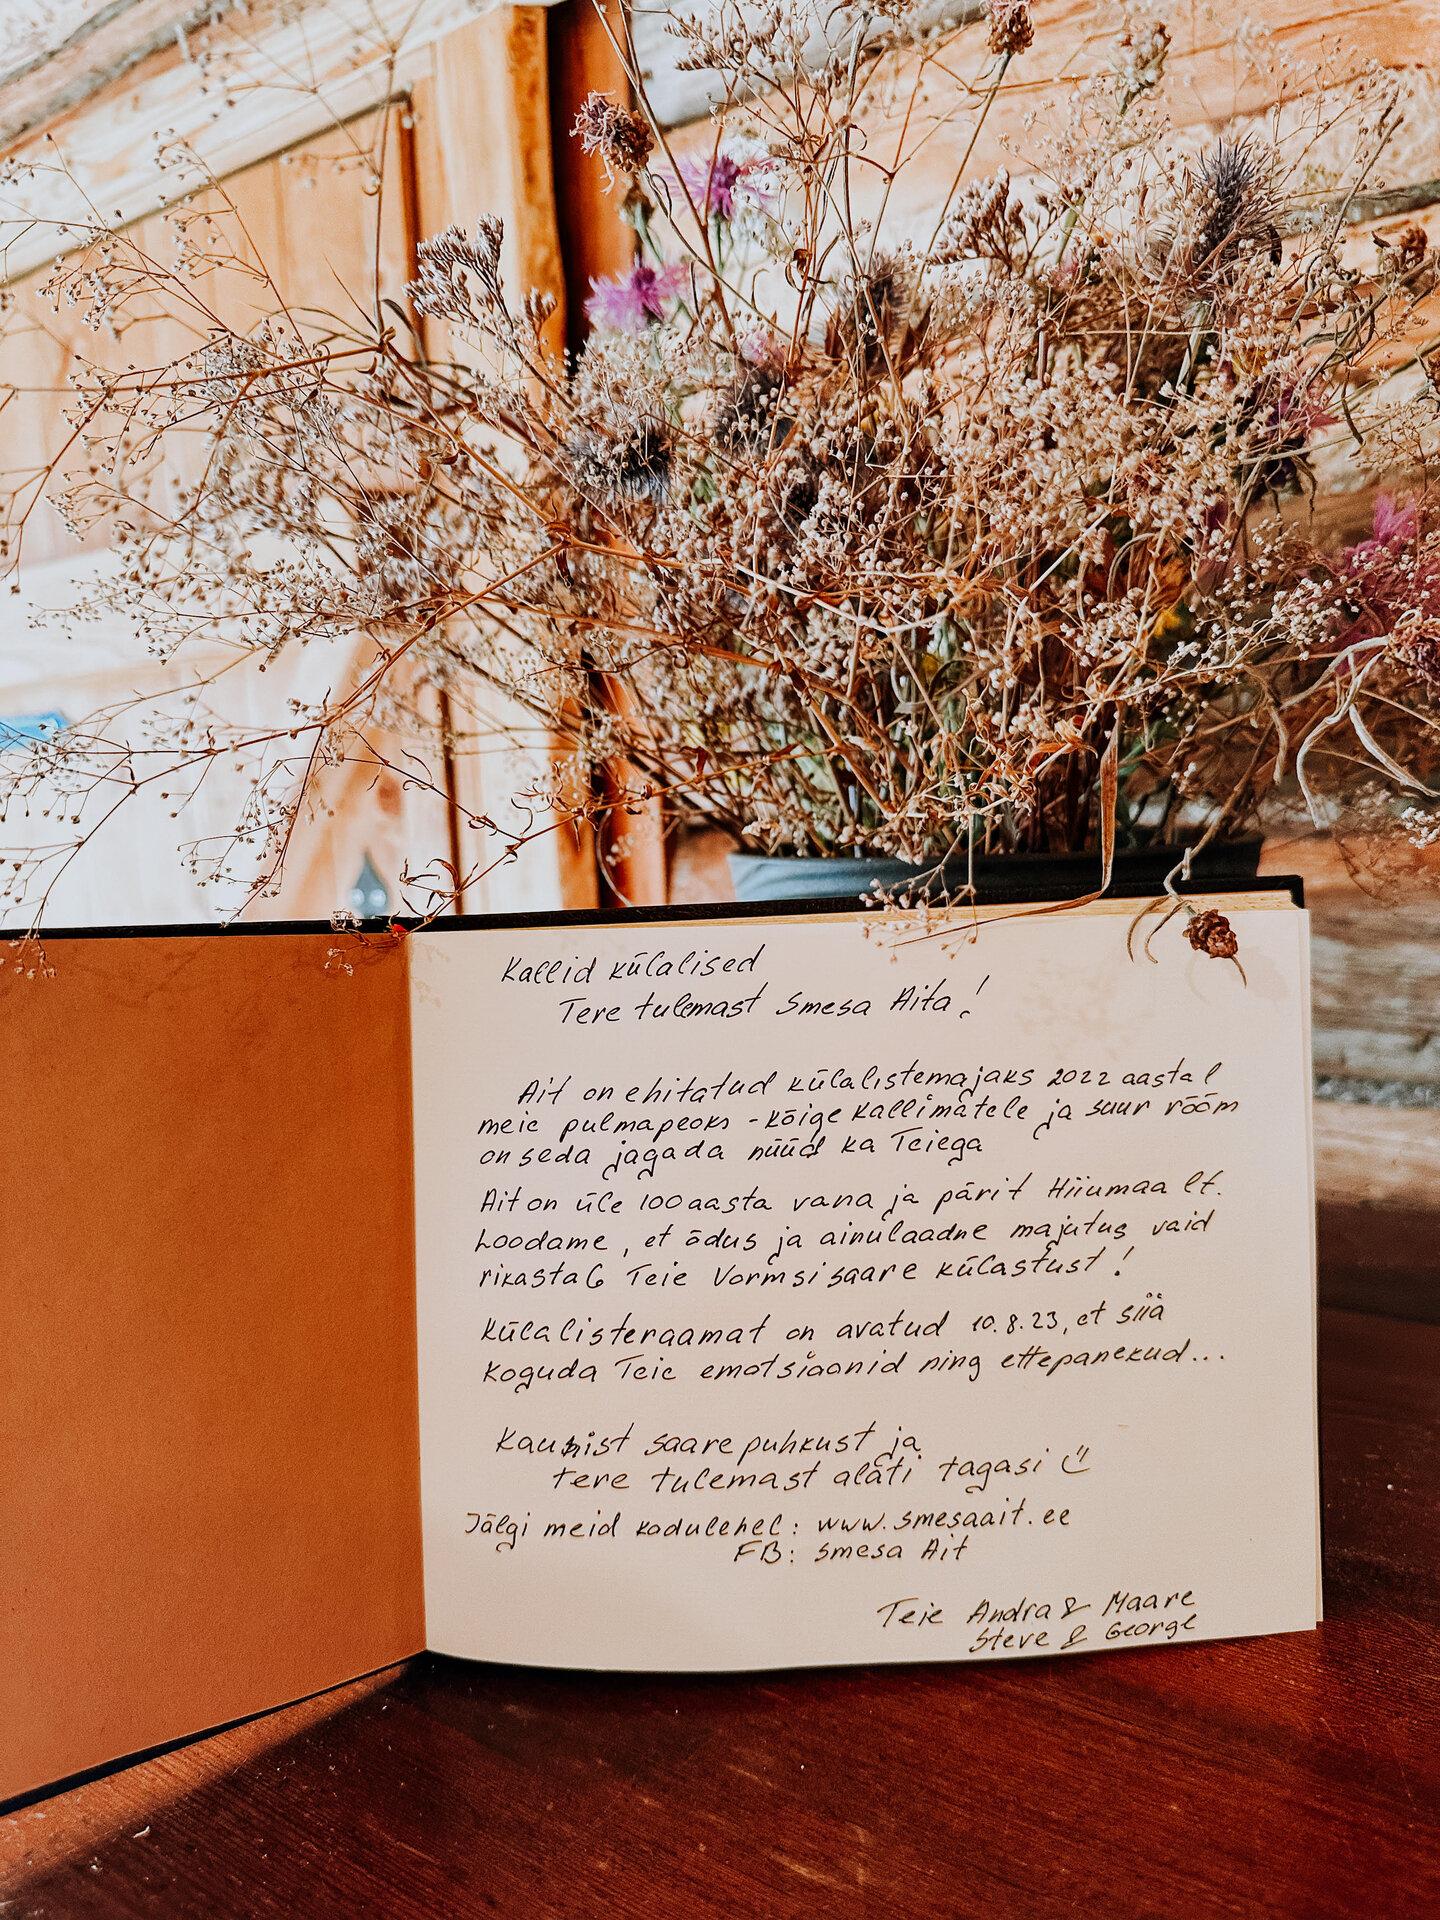 Kallid külalised
Tere tulemast Smesa Aita!
Ait on ehitatud külalistemajaks 2022 aastal
meie pulmapeoks - kõige kallimatele ja suur rõõm
on seda jagada nüüd ka Teiega
Ait on üle 100 aasta vana ja pärit Hiiumaalt.
Loodame, et õdus ja ainulaadne majutus vaid
rikastab Teie Vormsi saare külastust!
Külalisteraamat on avatud 10.8.23, et siia
koguda Teie emotsioonid ning ettepanekud...
Kaunist saarepuhkust ja
tere tulemast alati tagasi
Jälgi meid kodulehel: www.smesaait.ee
FB: Smesa Ait
Teie Andra & Maare
Steve & George